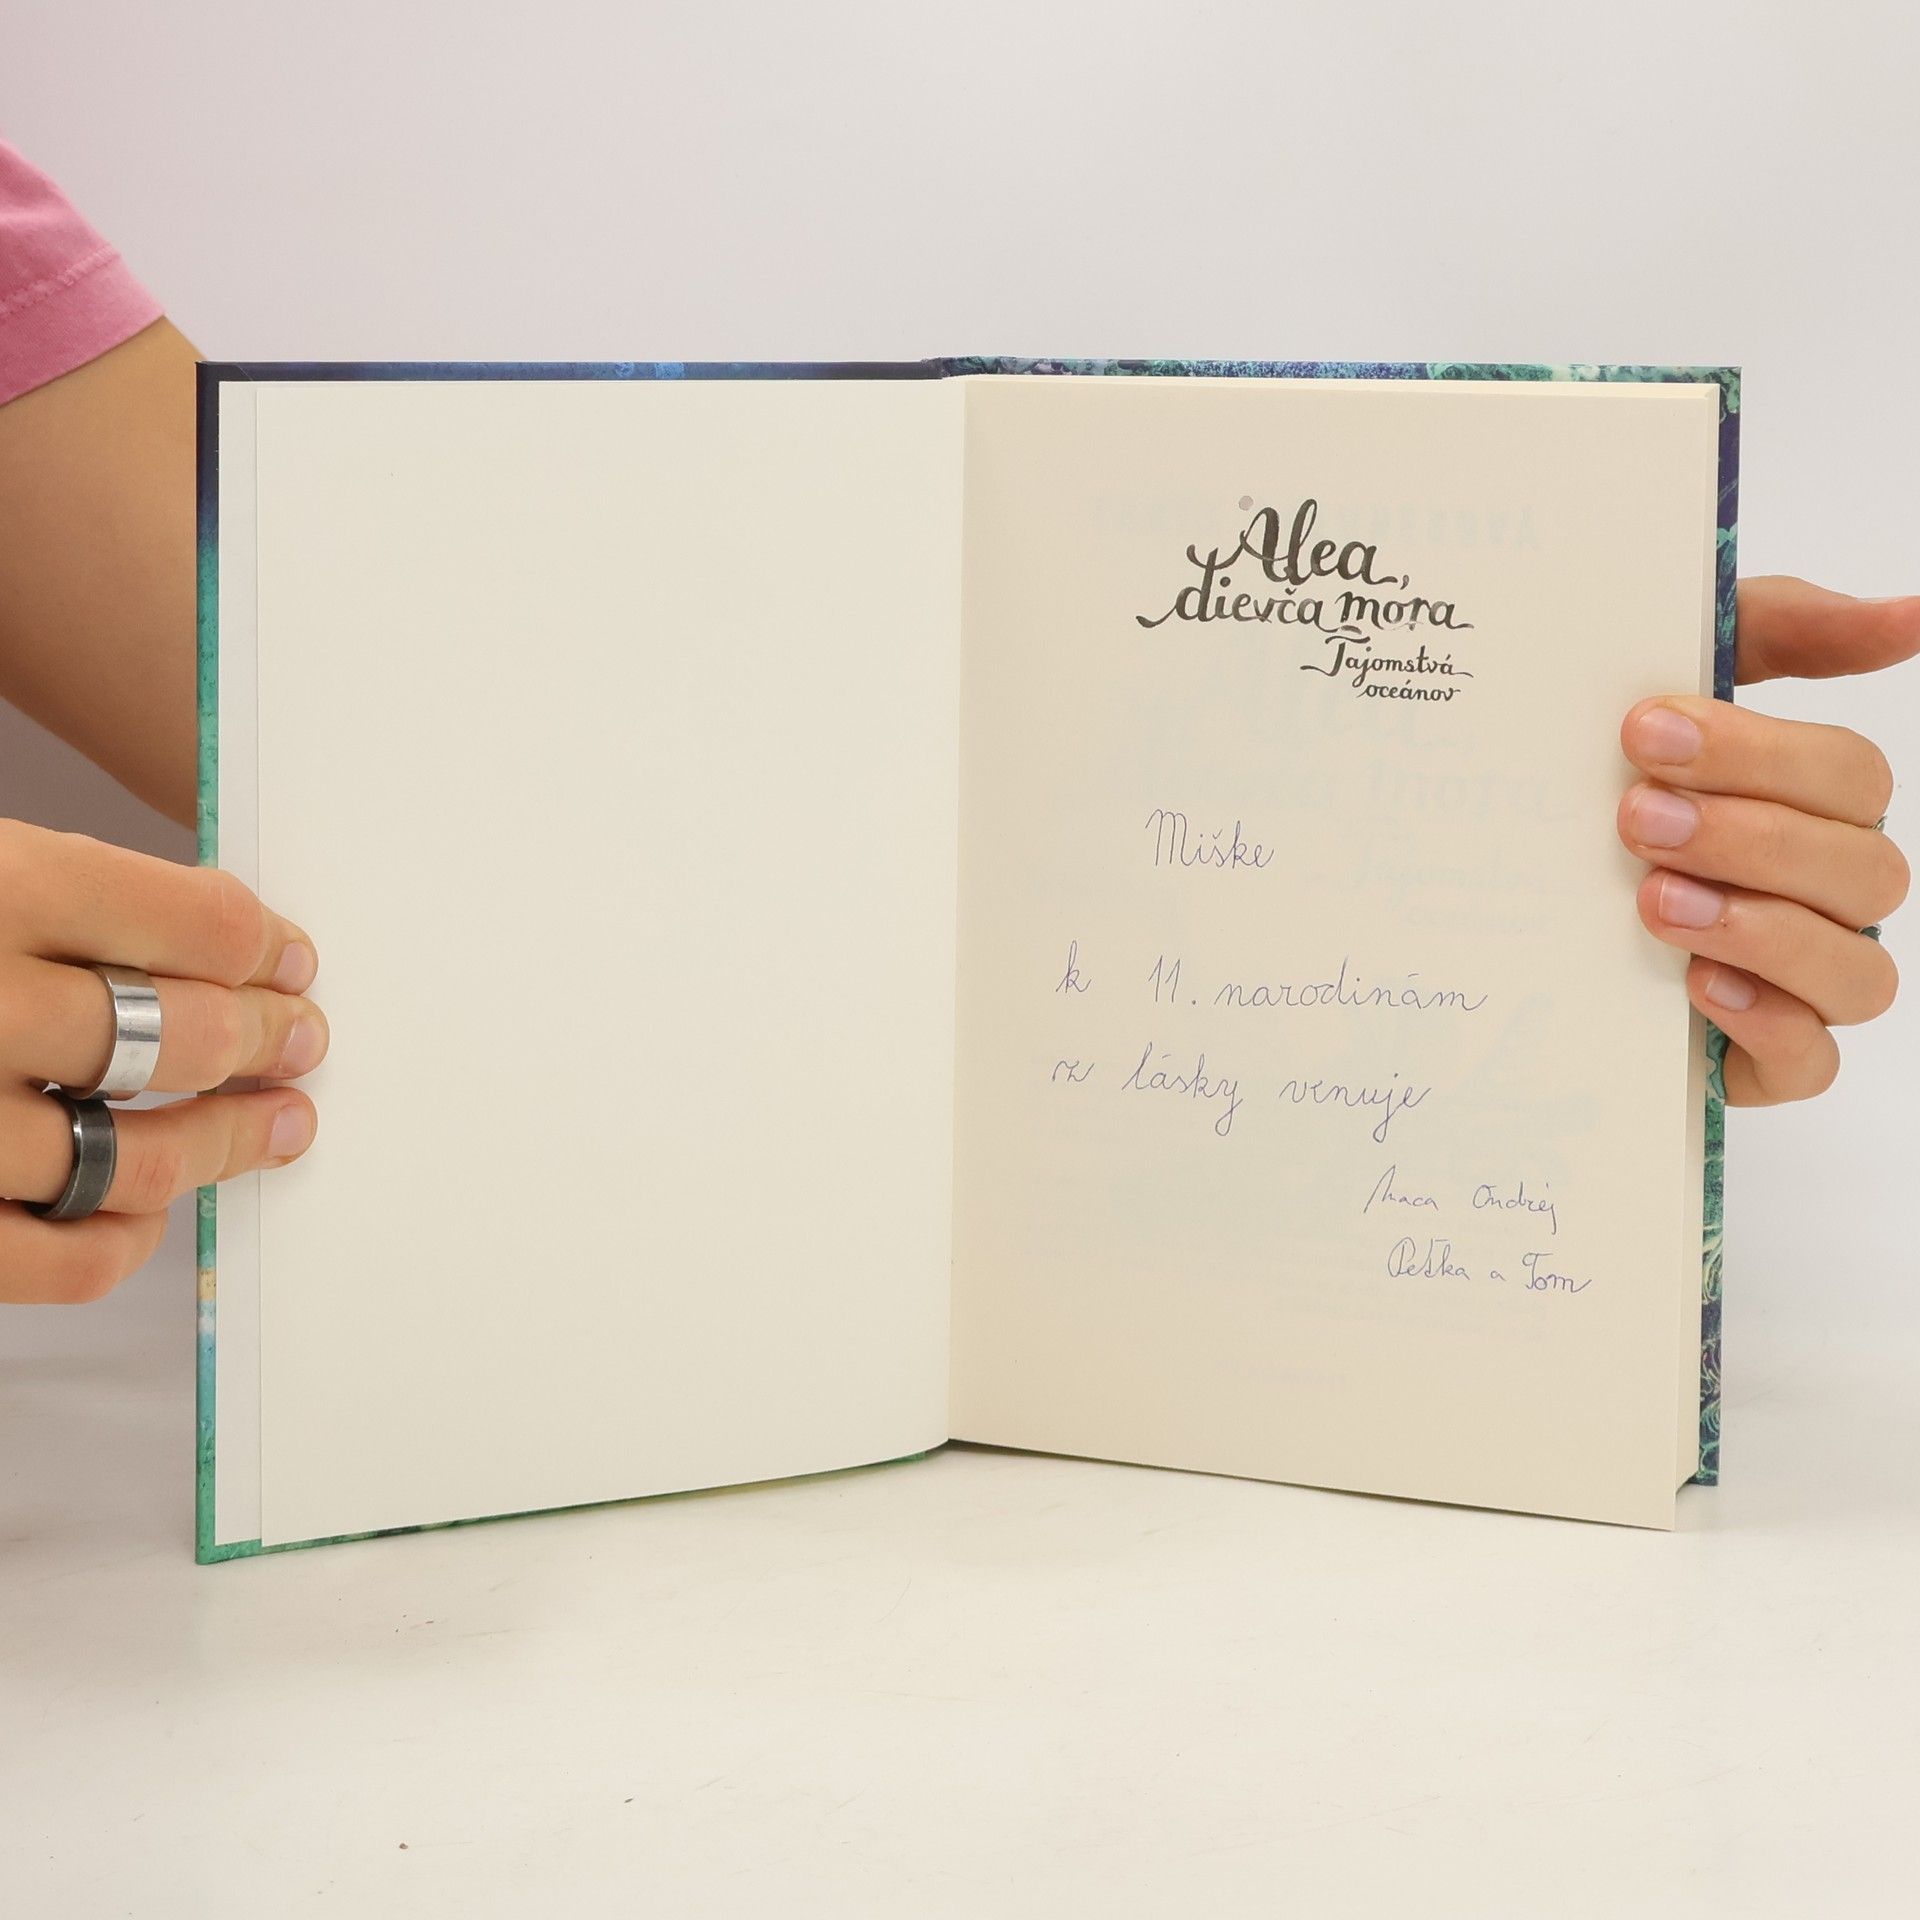 Alea,
dievča mora
Tajomstvá
oceánov
Miške
k 11. narodinám
z lásky venuje
Ondrej
Peťka a Tom